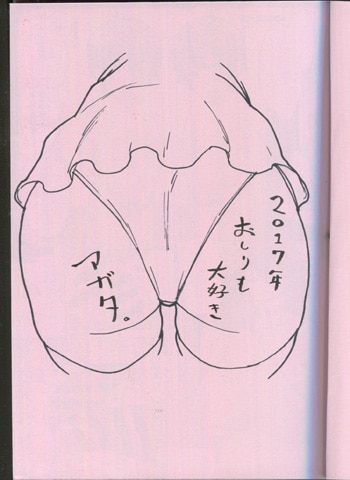 2017年
おしりも
大好き
アガタ。